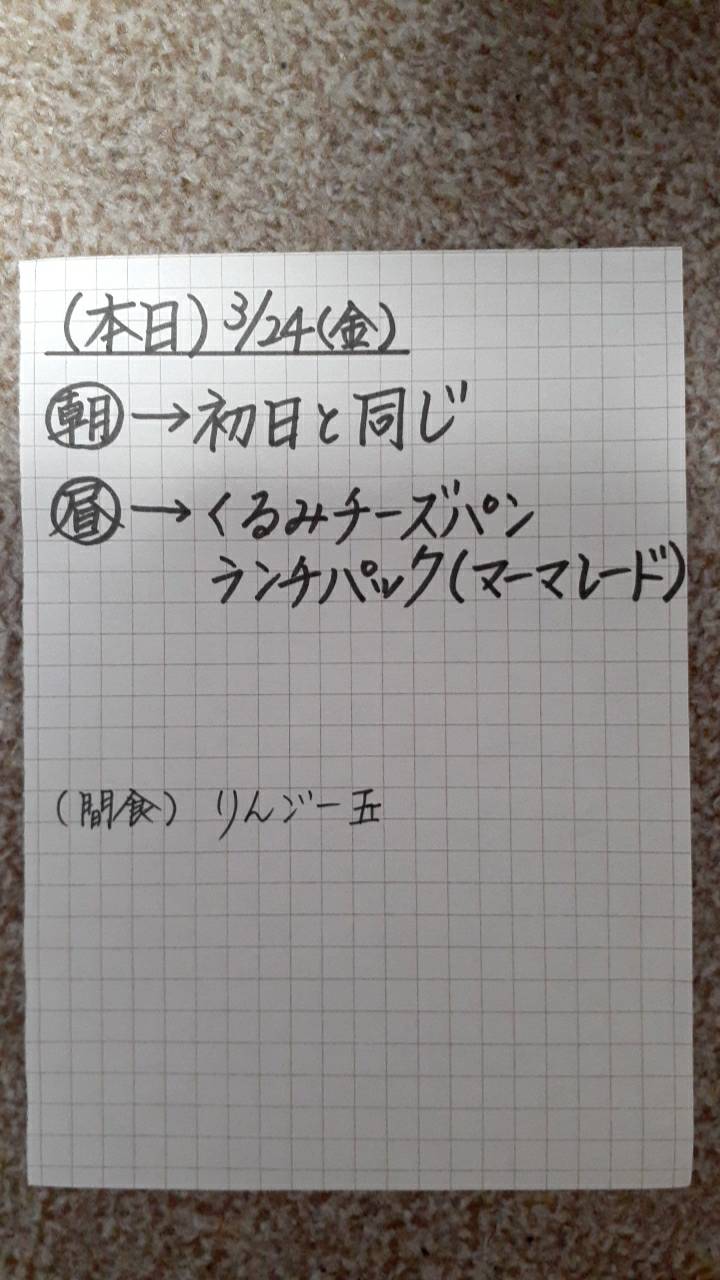 (本日) 3/24(金)
朝→初日と同じ
昼→くるみチーズパン
ランチパック(マーマレード)
(間食) りんご一玉